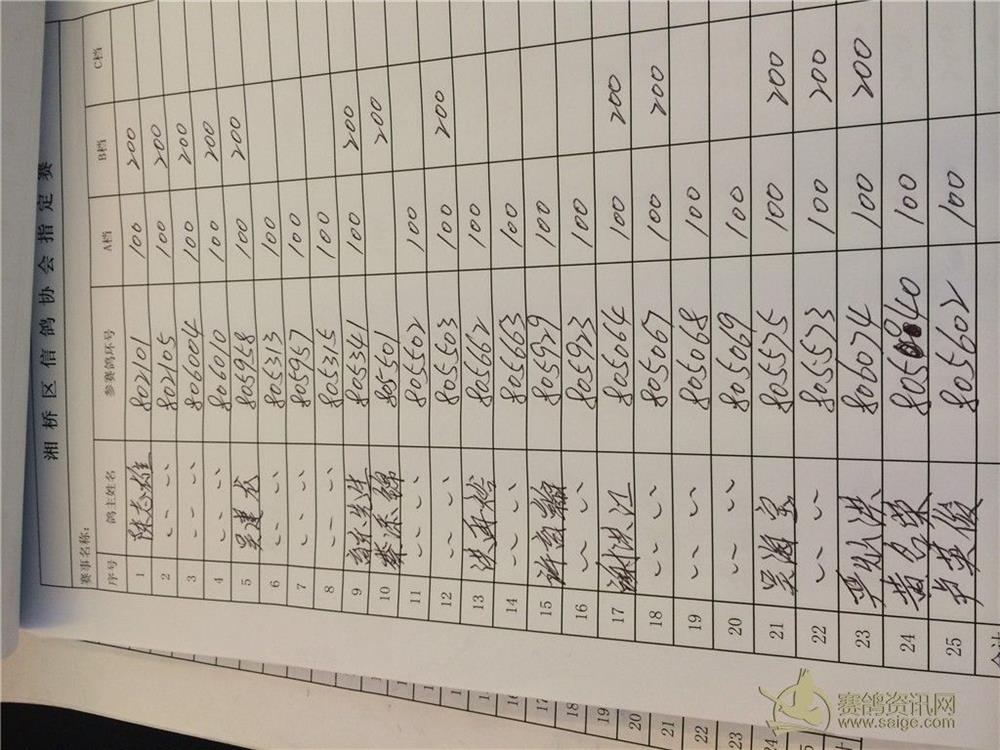 湘桥区信鸽协会指定赛
赛事名称：
序号 鸽主姓名 参赛鸽环号 A档 B档 C档
1 陈志雄 802101 100 200
2 〃 802105 100 200
3 〃 806004 100 200
4 〃 806010 100 200
5 吴建龙 805958 100 200
6 〃 805313 100
7 〃 805957 100
8 〃 805315 100
9 805341 100 200
10 805501 200
11 〃 805502 100
12 〃 805503 100 200
13 805662 100
14 〃 805663 100
15 805929 100
16 〃 805923 100
17 谢洪江 805064 100 200
18 〃 805067 100 200
19 〃 805068 100
20 〃 805069 100
21 吴海宝 805575 100 200
22 〃 805573 100 200
23 洪 806074 100 200
24 黄名荣 100
25 英俊 805602 100
合计
16
17
18
19
20
21
22
23
24
赛鸽资讯网
www.saige.com